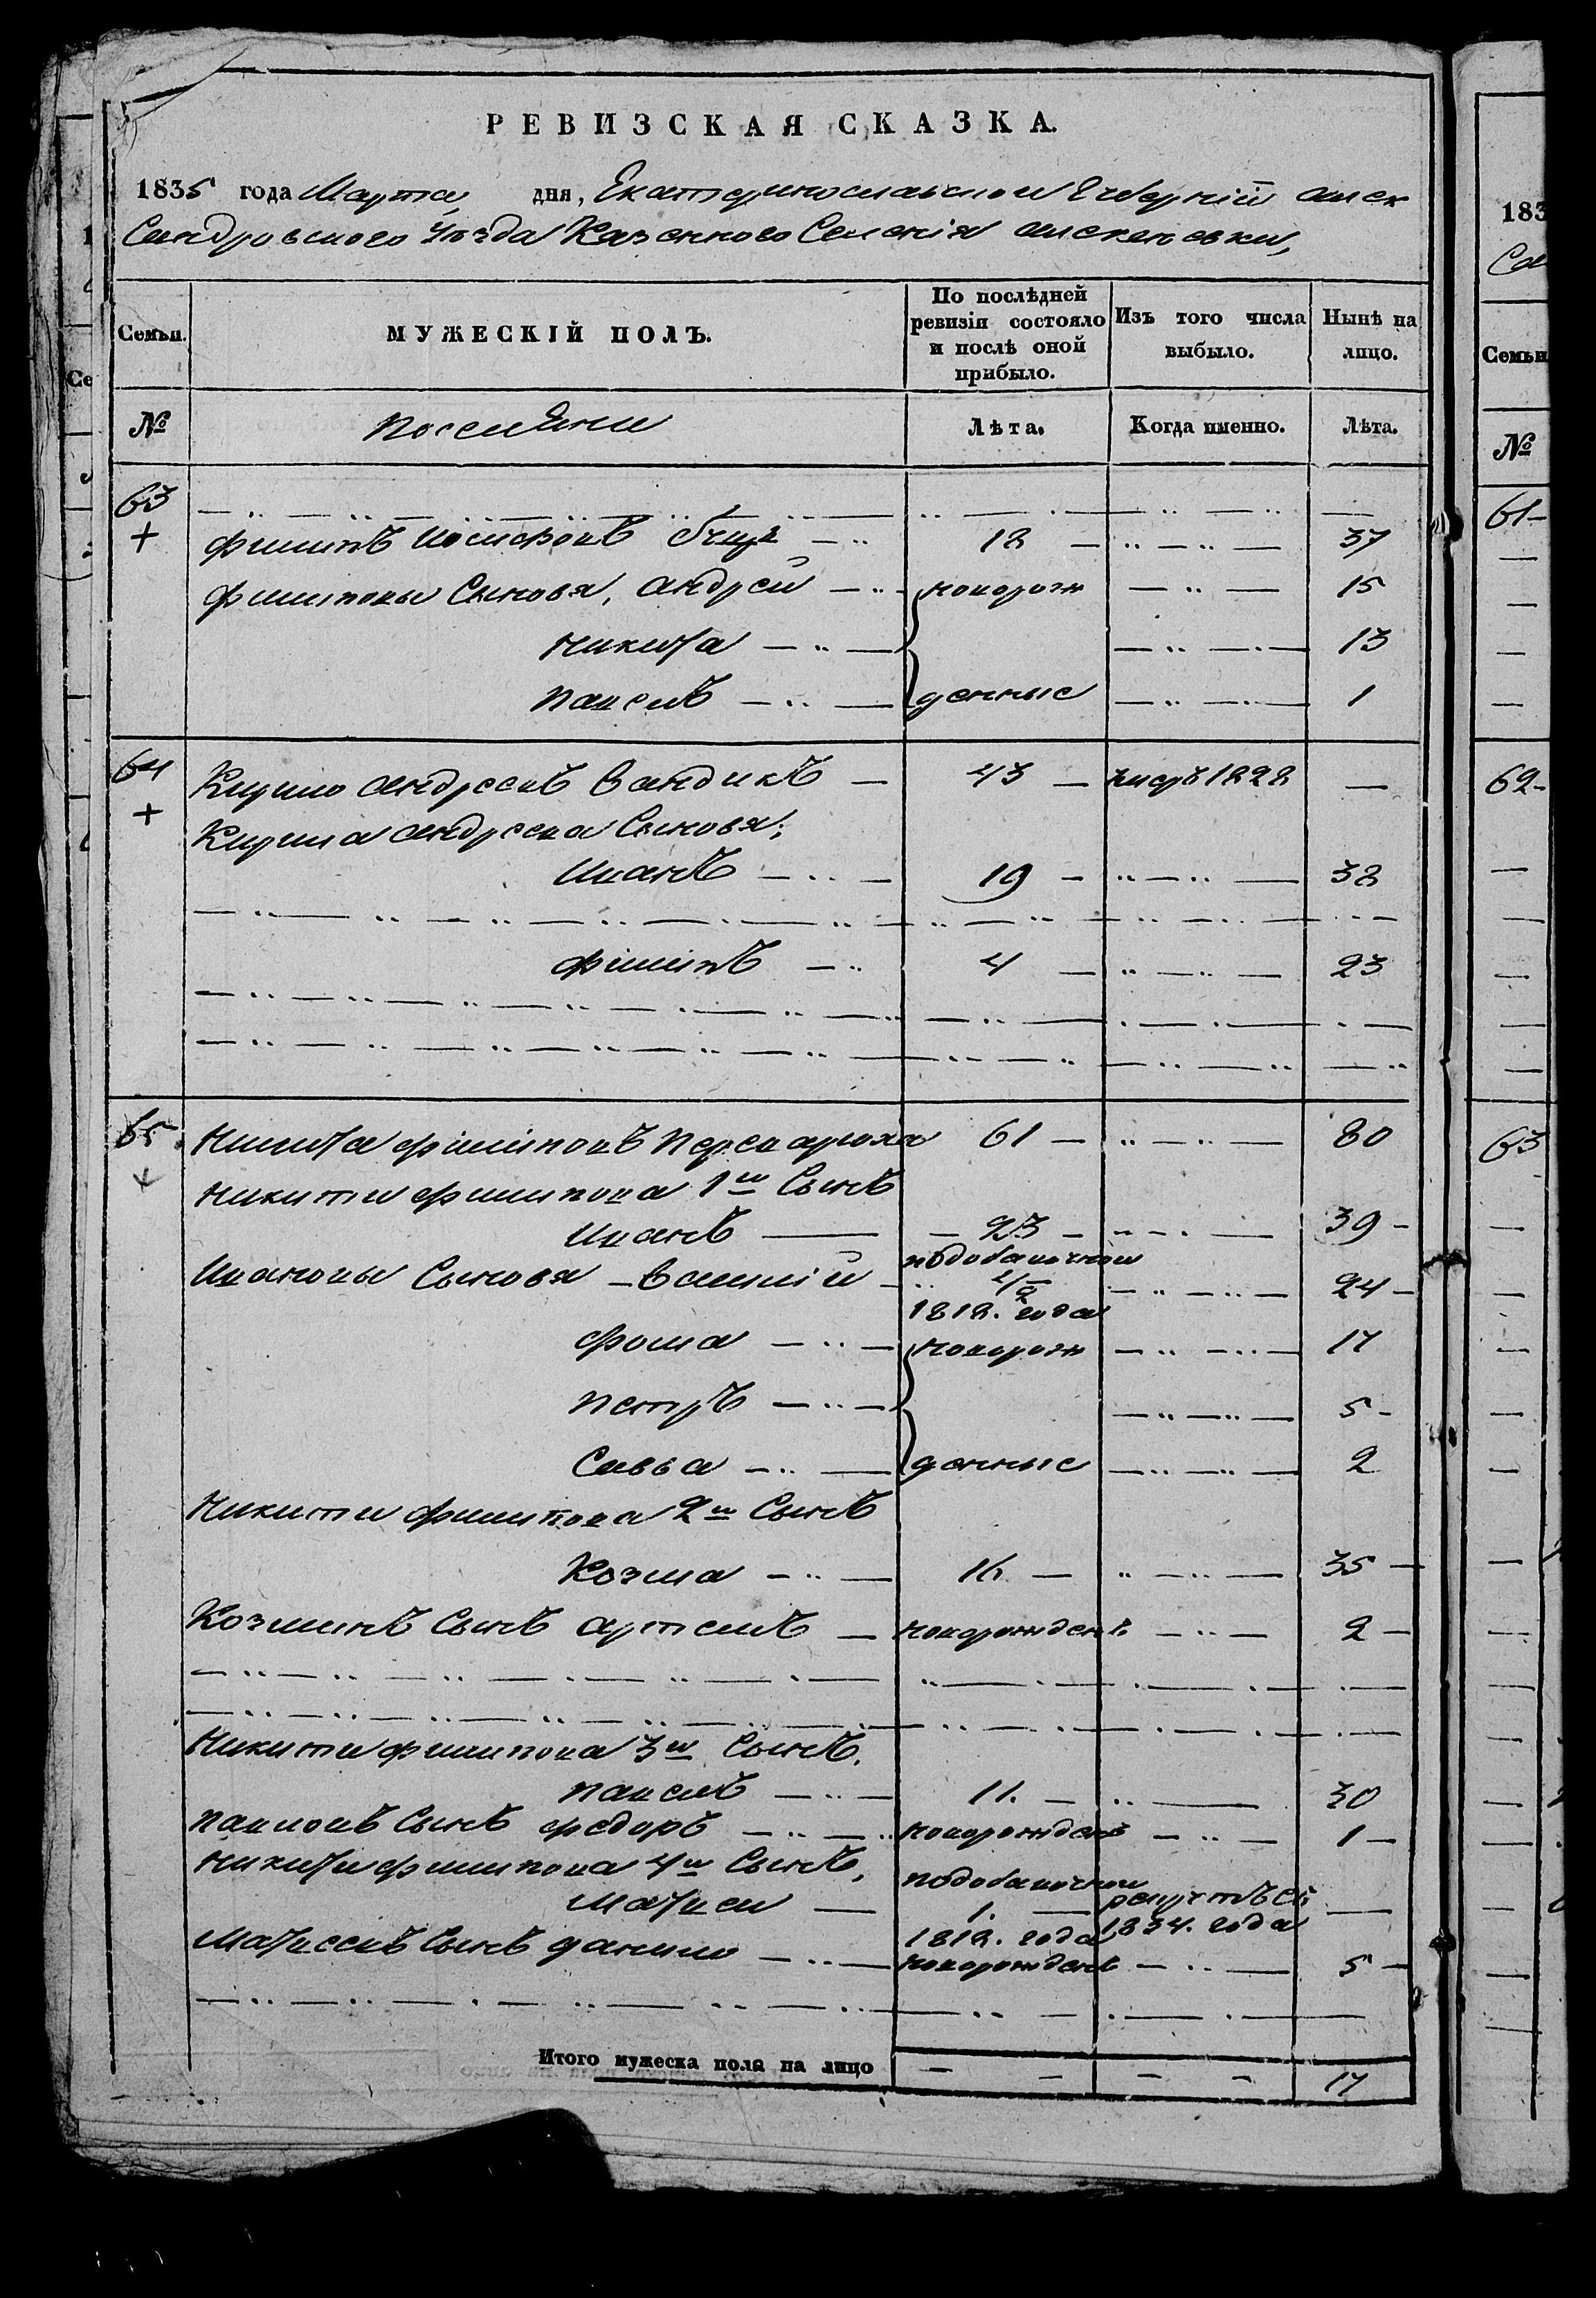 РЕВИЗСКАЯ СКАЗКА.
1835 года Марта дня, Екатеринославской Губерніи Алек
Сандровского уѣзда Казенного Селенія Алексѣевки,
Семьи. МУЖЕСКІЙ ПОЛЪ. По послѣдней ревизіи состояло и послѣ оной прибыло. Изъ того числа выбыло. Нынѣ на лицо.
№ Поселяни Лѣта. Когда именно. Лѣта.
63
Филипъ 18 37
Филиповы Сыновя, Андрей новорож 15
Никита 13
Павелъ денные 1
64 Кирило Андреевъ Вандикъ 43 умеръ 1828
Кирила Андреева Сыновя;
Иванъ 19 38
Филипъ 4 23
65 Никита Филиповъ 61 80
Никити Филипова 1й Сынъ
Иванъ 23 39
Ивановы Сыновя Василій 24
1812. года
Фома новорож 17
Петръ 5
Савва денные 2
Никити Филипова 2й Сынъ
Козма 16 35
Козминъ Сынъ Артемъ новорожденъ 2
Никити Филипова 3й Сынъ.
Павелъ 11. 30
Павловъ Сынъ Федоръ новорожденъ 1
Никити Филипова 4й Сынъ,
Матвей 1.
1812. года 1834. года
Матвеевъ Сынъ Данило новорожденъ 5
Итого мужеска пола на лицо 17
183
Се
Семьи
№
61
62
63